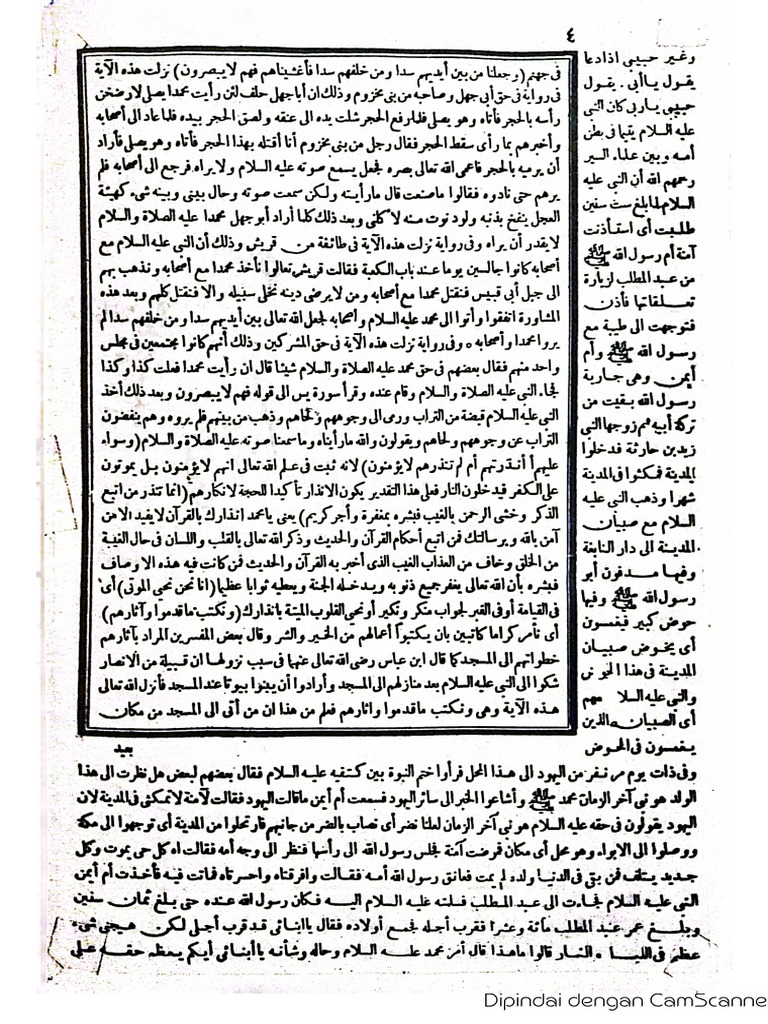 ٤
فى جهنم (وجعلنا من بين أيديهم سدا ومن خلفهم سدا فأغشيناهم فهم لا يبصرون) نزلت هذه الآية
فى رواية فى حق أبى جهل وصاحبه من بنى مخزوم وذلك ان أباجهل حلف لئن رأيت محمدا يصلى لارضخن
رأسه بالحجر فأتاه وهو يصلى فلما رفع الحجر شلت يده الى عنقه ولصق الحجر بيده فلما عاد الى أصحابه
وأخبرهم بما رأى سقط الحجر فقال رجل من بنى مخزوم أنا أقتله بهذا الحجر فأتاه وهو يصلى فأراد
أن يرميه بالحجر فاعمى الله تعالى بصره فجعل يسمع صوته عليه السلام ولا يراه فرجع الى أصحابه فلم
يرهم حتى نادوه فقالوا ماصنعت قال مارأيته ولكن سمعت صوته وحال بينى وبينه شىء كهيئة
العجل ينفخ بذنبه ولو دنوت منه لا كلنى وبعد ذلك كلما أراد أبو جهل محمدا عليه الصلاة والسلام
لا يقدر أن يراه وفى رواية نزلت هذه الآية فى طائفة من قريش وذلك أن النبى عليه السلام مع
أصحابه كانوا جالسين يوما عند باب الكعبة فقالت قريش تعالوا نأخذ محمدا مع أصحابه ونذهب بهم
الى جبل أبى قبيس فنقتل محمدا مع أصحابه ومن لا يرضى دينه نخلى سبيله والا فنقتل كلهم وبعد هذه
المشاورة اتفقوا وأتوا الى محمد عليه السلام وأصحابه فجعل الله تعالى بين أيديهم سدا ومن خلفهم سدا لم
يروا محمدا وأصحابه • وفى رواية نزلت هذه الآية فى حق المشركين وذلك أنهم كانوا مجتمعين فى مجلس
واحد منهم فقال بعضهم فى حق محمد عليه الصلاة والسلام شيئا قال ان رأيت محمدا فعلت كذا وكذا
فجاء النبى عليه الصلاة والسلام وقام عنده وقرأ سورة يس الى قوله فهم لا يبصرون وبعد ذلك أخذ
النبى عليه السلام قبضة من التراب ورمى الى وجوههم ولحاهم وذهب من بينهم فلم يروه وهم ينفضون
التراب عن وجوههم ولحاهم ويقولون والله مارأيناه وماسمعنا صوته عليه الصلاة والسلام (وسواء
عليهم أأنذرتهم أم لم تنذرهم لا يؤمنون) لانه ثبت فى علم الله تعالى انهم لا يؤمنون بل يموتون
على الكفر فيدخلون النار فعلى هذا التقدير يكون الانذار تأكيدا للحجة لانكارهم (انما تنذر من اتبع
الذكر وخشى الرحمن بالغيب فبشره بمغفرة وأجر كريم) يعنى يامحمد انذارك بالقرآن لا يفيد الا من
آمن بالله وبرسالتك فمن اتبع أحكام القرآن والحديث وذكر الله تعالى بالقلب واللسان فى حال الغيبة
من الخلق وخاف من العذاب الغيب الذى أخبر به القرآن والحديث فمن كانت فيه هذه الاوصاف
فبشره بأن الله تعالى يغفر جميع ذنوبه ويدخله الجنة ويعطيه ثوابا عظيما (انا نحن نحيى الموتى) أى
فى القيامة أو فى القبر لجواب منكر ونكير أو نحيى القلوب الميتة بانذارك (ونكتب ماقدموا وآثارهم)
أى نأمر كراما كاتبين بان يكتبوا أعمالهم من الخير والشر وقال بعض المفسرين المراد بآثارهم
خطواتهم الى المسجد كما قال ابن عباس رضى الله تعالى عنهما فى سبب نزولها ان قبيلة من الانصار
شكوا الى النبى عليه السلام بعد منازلهم الى المسجد وأرادوا أن يبنوا بيوتا عند المسجد فأنزل الله تعالى
هذه الآية وهى ونكتب ماقدموا وآثارهم فعلم من هذا ان من أتى الى المسجد من مكان
بعيد
وغير حبيبى اذا دعا
يقول يا أبى . يقول
حبيبى يارب كان النبى
عليه السلام يتيما فى بطن
أمه وبين علماء السير
رحمهم الله أن النبى عليه
السلام لما بلغ ست سنين
طلبت أى استأذنت
آمنة أم رسول الله ﷺ
من عبد المطلب لزيارة
تعلقاتها فأذن
فتوجهت الى طيبة مع
رسول الله ﷺ وأم
أيمن وهى جارية
رسول الله بقيت من
تركة أبيه ثم زوجها النبى
زيد بن حارثة فدخلوا
المدينة فمكثوا فى المدينة
شهرا وذهب النبى عليه
السلام مع صبيان
المدينة الى دار النابغة
وفيها مدفون أبو
رسول الله ﷺ وفيها
حوض كبير فيغمسون
أى يخوض صبيان
المدينة فى هذا الحوض
والنبى عليه السلا مهم
أى الصبيان الذين
يغمسون فى الحوض
وفى ذات يوم مر نفر من اليهود الى هذا المحل فرأوا ختم النبوة بين كتفيه عليه السلام فقال بعضهم لبعض هل نظرت الى هذا
الولد هو نبى آخر الزمان محمد ﷺ وأشاعوا الخبر الى سائر اليهود فسمعت أم أيمن ماقالت اليهود فقالت لآمنة لا تمكثى فى المدينة لان
اليهود يقولون فى حقه عليه السلام هو نبى آخر الزمان لعلنا نضر أى نصاب بالضر من جانبهم فارتحلوا من المدينة أى توجهوا الى مكة
ووصلوا الى الابواء وهو محل أى مكان فمرضت آمنة فجلس رسول الله الى رأسها فنظر الى وجه أمه فقالت اه كل حى يموت وكل
جديد يتلف فمن بقى فى الدنيا ولده لم يمت فعانق رسول الله أمه فقالت وافرقتاه واحسرتاه فماتت فيه فأخذت أم أيمن
النبى عليه السلام فجاءت الى عبد المطلب فسلمته عليه السلام اليه فكان رسول الله عنده حتى بلغ ثمان سنين
وبلغ عمر عبد المطلب مائة وعشرا فقرب أجله فجمع أولاده فقال ياابنائى قد قرب أجلى لكن هيجنى شىء
عظيم فى قالوا ماهذا قال أمر محمد عليه السلام وحاله وشأنه ياأبنائى أيكم يعظه حقه على
Dipindai dengan CamScanne